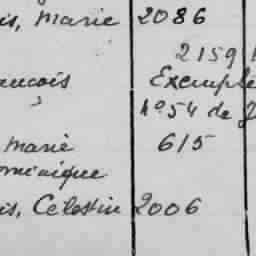 is, Marie 2086
2159
ancois Exemple
N° 54 de
Marie 615
ominique
is, Celestin 2006